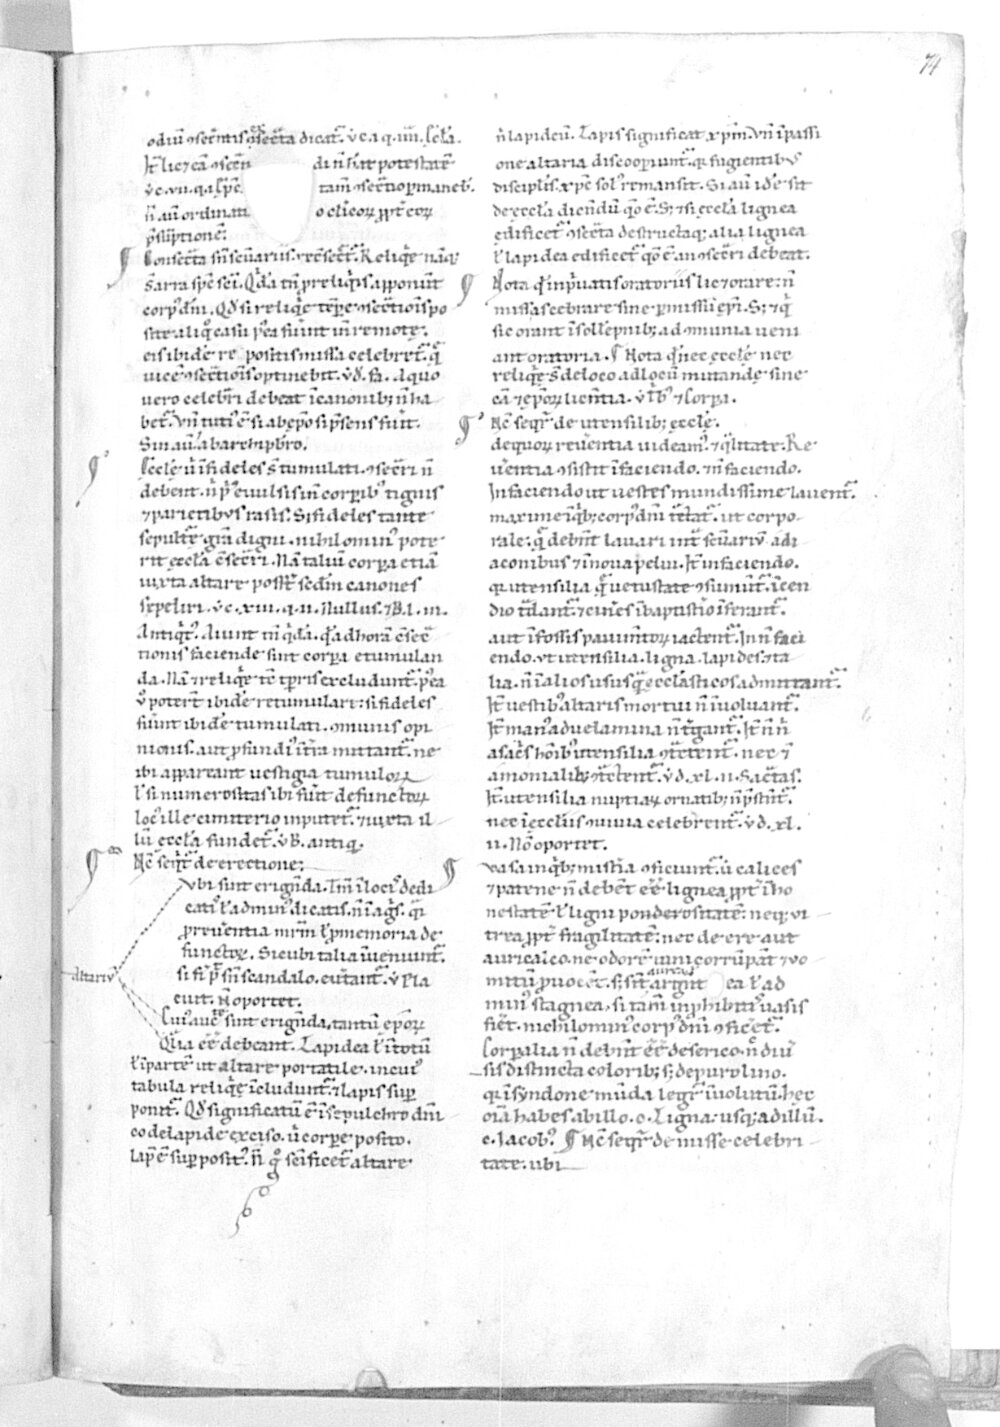 74
odiū ꝯsecͣtis ꝯsecͣta dicat᷑. v̄. c. a. q. iiii. Ecl̄a.
It̄ licꝫ eā ꝯsecͣ di n̄ hēat potestatē
v̄. c. vii. q. a. tam̄ ꝯsecͣtio ꝑmaneb᷑.
n̄ aū ordinati o cl̄icoꝝ ꝓpt̄ eoꝝ
p̄sūptionē.
Consecͣta
corpꝰ dn̄i. Qđ si reliq̄ę tēꝑe ꝯsecͣtiōis po
site aliq̊ casu postea fiūnt inremotę.
eis ibidē re positis missa celebret᷑. q̄
uicē ꝯsecͣtiōis optinebit. v̄. đ. A quo
uero celebrͥ debeat ī canonibꝫ n̄ ha
bet᷑. vn̄ tutiꝰ ē si ab ep̄o si p̄sens fuit.
Sin aū ab archipb̄ro.
Ecclę ū īfideles st̄ tumulati ꝯsecͣri n̄
debent. n̄ pͥꝰ euulsis inde corꝑibꝰ tignis
⁊ parietibꝰ rasis. Si fideles tante
sepultę grā digni. nihilominꝰ pote
rit eccl̄a ꝯsecͣri. Nā taliū corꝑa etiā
iuxta altare poss̄t sc̄đm canones
sepeliri. v̄. c. xiii. q. ii. Nullus. ⁊ B. l. iii.
Antiqͥtꝰ. Aiunt tn̄ qͥdā. qđ ad horā ꝯsecͣ
tionis faciendę sint corꝑa etumulan
da. Nā ⁊ reliq̄ę tē tꝑis excludunt᷑. p̄ea
ū poterūt ibidē retumulari: si fideles
fiūnt ibidē tumulati. ꝯmunis opi
nio nis. aut ꝓfundiꝰ ī tr̄a mittant᷑. ne
ibi appareant uestigia tumuloꝝ
ł si numerositas ibi sūt defunctoꝝ
locꝰ ille cimiterio inputet᷑. ⁊ iuxta il
lū eccl̄a fundet᷑. v̄. B. antiq.
Nc̄ seqͥt᷑ de erectione:
altariū
Vbi sint erigēda. Tm̄ ī locis dedi
catis ł ad minꝰ dicatis. n̄ ī agͥs. q̄
ꝓ reuēntia mr̄m ł ꝓ memoria de
functoꝝ. Sicubi talia īueniunt᷑.
si fiͥ pͥt sn̄ scandalo. euͥtant᷑. v̄. Pla
cuit. Nō oportet.
Cuiꝰ auct̄e sint erigēda. tantū ep̄oꝝ
Qͣlia eē debeant. Lapidea ł ī totū
ł ī partē ut altare portatile. in cuiꝰ
tabula reliq̄ę īcludunt᷑. ⁊ lapis suꝑ
ponit᷑. Qđ significatū ē ī sepulchro dn̄i
eo de lapide exciso. ū corꝑe posito.
lapis ē suꝑpositꝰ. n̄ q̊ sc̄ificet᷑ altare
n̄ lapideū. Lapis significat xp̄m. vn̄ ī passi
one altaria discooꝑiunt᷑. qͥ fugientibꝰ
disciplis xp̄c solꝰ remansit. Si aū idē sit
de eccl̄a dicendū qo ē. S; ⁊ si eccl̄a lignea
edificet᷑ ꝯsecͣta destructaqꝫ alia lignea
ł lapidea edificet᷑ qo ē. an ꝯsecͣri debeat.
Nota qđ in pͥuatis oratoriis licꝫ orare: n̄
missas celebrare sine ꝑmissu ep̄i. S; ⁊ qͥ
sic orant ī sollēpnibꝫ ad omunia ueni
ant oratoria. ¶ Nota qđ nec ecclę nec
reliq̄ę st̄ de loco ad locū mutandę sine
cā ⁊ ep̄oꝝ licentia. v̄. Tͥbꝰ ⁊ Corꝑa.
Nc̄ seqͥr de utensilibꝫ ecclę.
de quoꝝ reūentia uideamꝰ. ⁊ qͣlitate. Re
ūentia ꝯsistit ī faciendo. ⁊ n̄ faciendo.
In faciendo ut uestes mundissime lauent᷑.
maxime ī qͥbꝫ corpꝰ dn̄i tͣctat᷑. ut corpo-
rale: q̄ debent lauari intͣ secͣriū a di
aconibus ⁊ ī noua pelui. It̄ in faciendo.
qͥ utensilia q̄ uetustate ꝯsumūt᷑. īcen
dio tͣdant᷑. ⁊ cineres ī baptist̄io īferant᷑.
aut ī fossis pauimtoꝝ iactent᷑. In n̄ faci
endo. ut utensilia. ligna. lapides. ⁊ ta
lia. n̄ ī alios usus q̄ eccl̄asticos admittant᷑.
It̄ uestibꝰ altaris mortui n̄ īuoluant᷑.
It̄ manꝰ ad uelamina n̄ tͣgant᷑. It̄ n̄ n̄
a sacͥs hoībꝰ utensilia ꝯtͣctent᷑. nec ī
amonialibꝫ ꝯtͣctent᷑. v̄. đ. xl. ii. Sacͣtas.
It̄ utensilia nuptiaꝝ ornatibꝫ n̄ p̄stent᷑.
nec ī ecclīis ꝯuiuia celebrent᷑. v̄. đ. xl.
ii. Nō oportet.
Vasa in qͥbꝫ mist̄ia ꝯficiunt᷑. ū calices
⁊ patene n̄ debēt eē lignea ꝓpt̄ īho
nestatē ł ligni ponderositatē: neqꝫ ui
trea ꝓpt̄ fragilitatē: nec de ere aut
auricalco. ne odorē uini corrūpat ⁊ uo
mitū ꝓuocet. s; sint aurea argēt ea ł ad
minꝰ stagnea. si tam̄ in ꝓhibitis uasis
fiet. nichilominꝰ corpꝰ dn̄i ꝯficet᷑.
Corꝑalia n̄ debēnt eē de serico. n̄ diū
sis distincta coloribꝫ. s; de puro lino.
qͥ ī syndone mūda legͥ īuolutū. hęc
oīa habes ab illo. c. Ligna. usqꝫ ad illū.
c. Jacobꝰ. ¶ Nc̄ seqͥr de misse celebri
tate. ubi